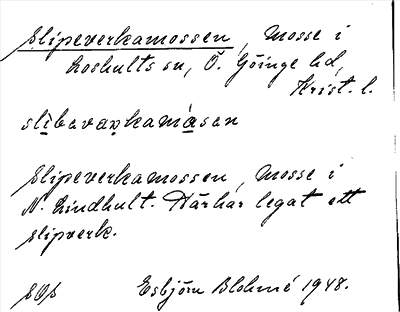 Slipeverkamossen, Mosse i
Loshults sn, Ö. Göinge hd,
Krist. l.
slibevaŗkamåsen
Slipeverkamossen, Mosse i
N. Lindhult. Där har legat ett
slipverk.
SOS Esbjörn Blohmé 1948.